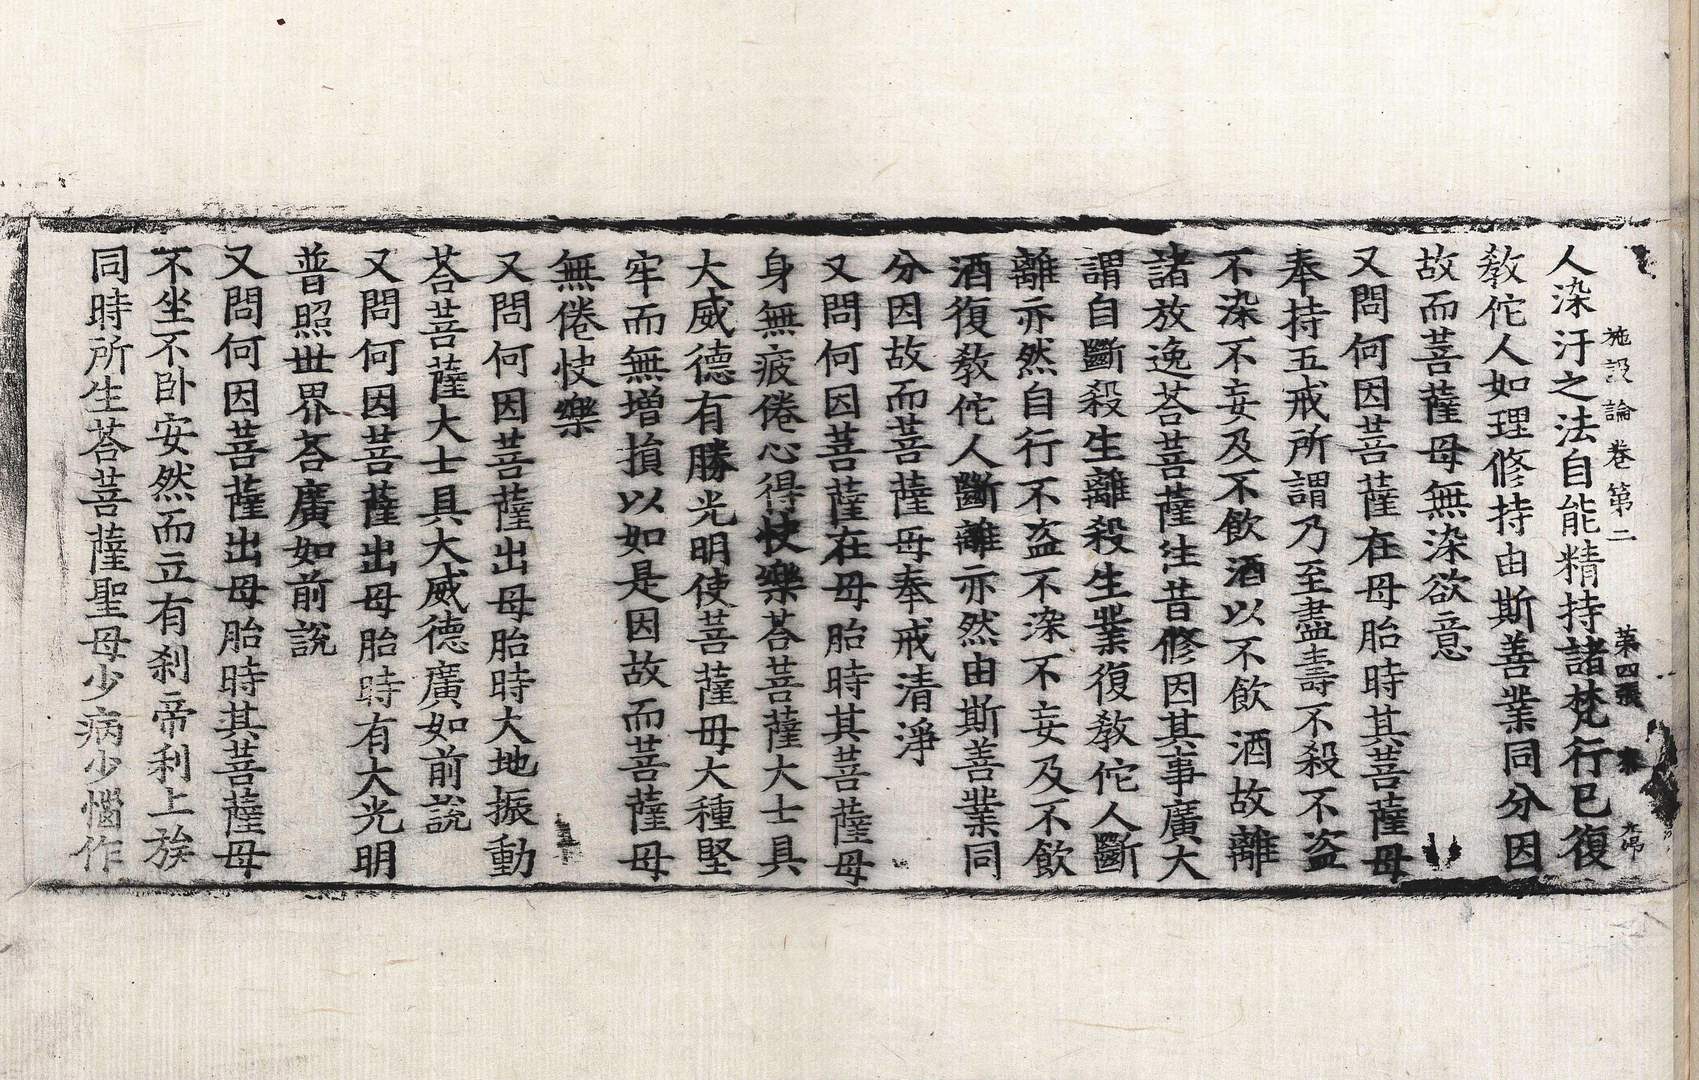 施設論卷第二 第四張
人染汙之法自能精持諸梵行已復
教佗人如理修持由斯善業同分因
故而菩薩母無染欲意
又問何因菩薩在母胎時其菩薩母
奉持五戒所謂乃至盡壽不殺不盜
不染不妄及不飲酒以不飲酒故離
諸放逸荅菩薩往昔修因其事廣大
謂自斷殺生離殺生業復教佗人斷
離亦然自行不盜不染不妄及不飲
酒復教佗人斷離亦然由斯善業同
分因故而菩薩母奉戒清淨
又問何因菩薩在母胎時其菩薩母
身無疲倦心得快樂荅菩薩大士具
大威德有勝光明使菩薩母大種堅
牢而無增損以如是因故而菩薩母
無倦快樂
又問何因菩薩出母胎時大地振動
荅菩薩大士具大威德廣如前說
又問何因菩薩出母胎時有大光明
普照世界荅廣如前說
又問何因菩薩出母胎時其菩薩母
不坐不卧安然而立有刹帝利上族
同時所生荅菩薩聖母少病少惱作